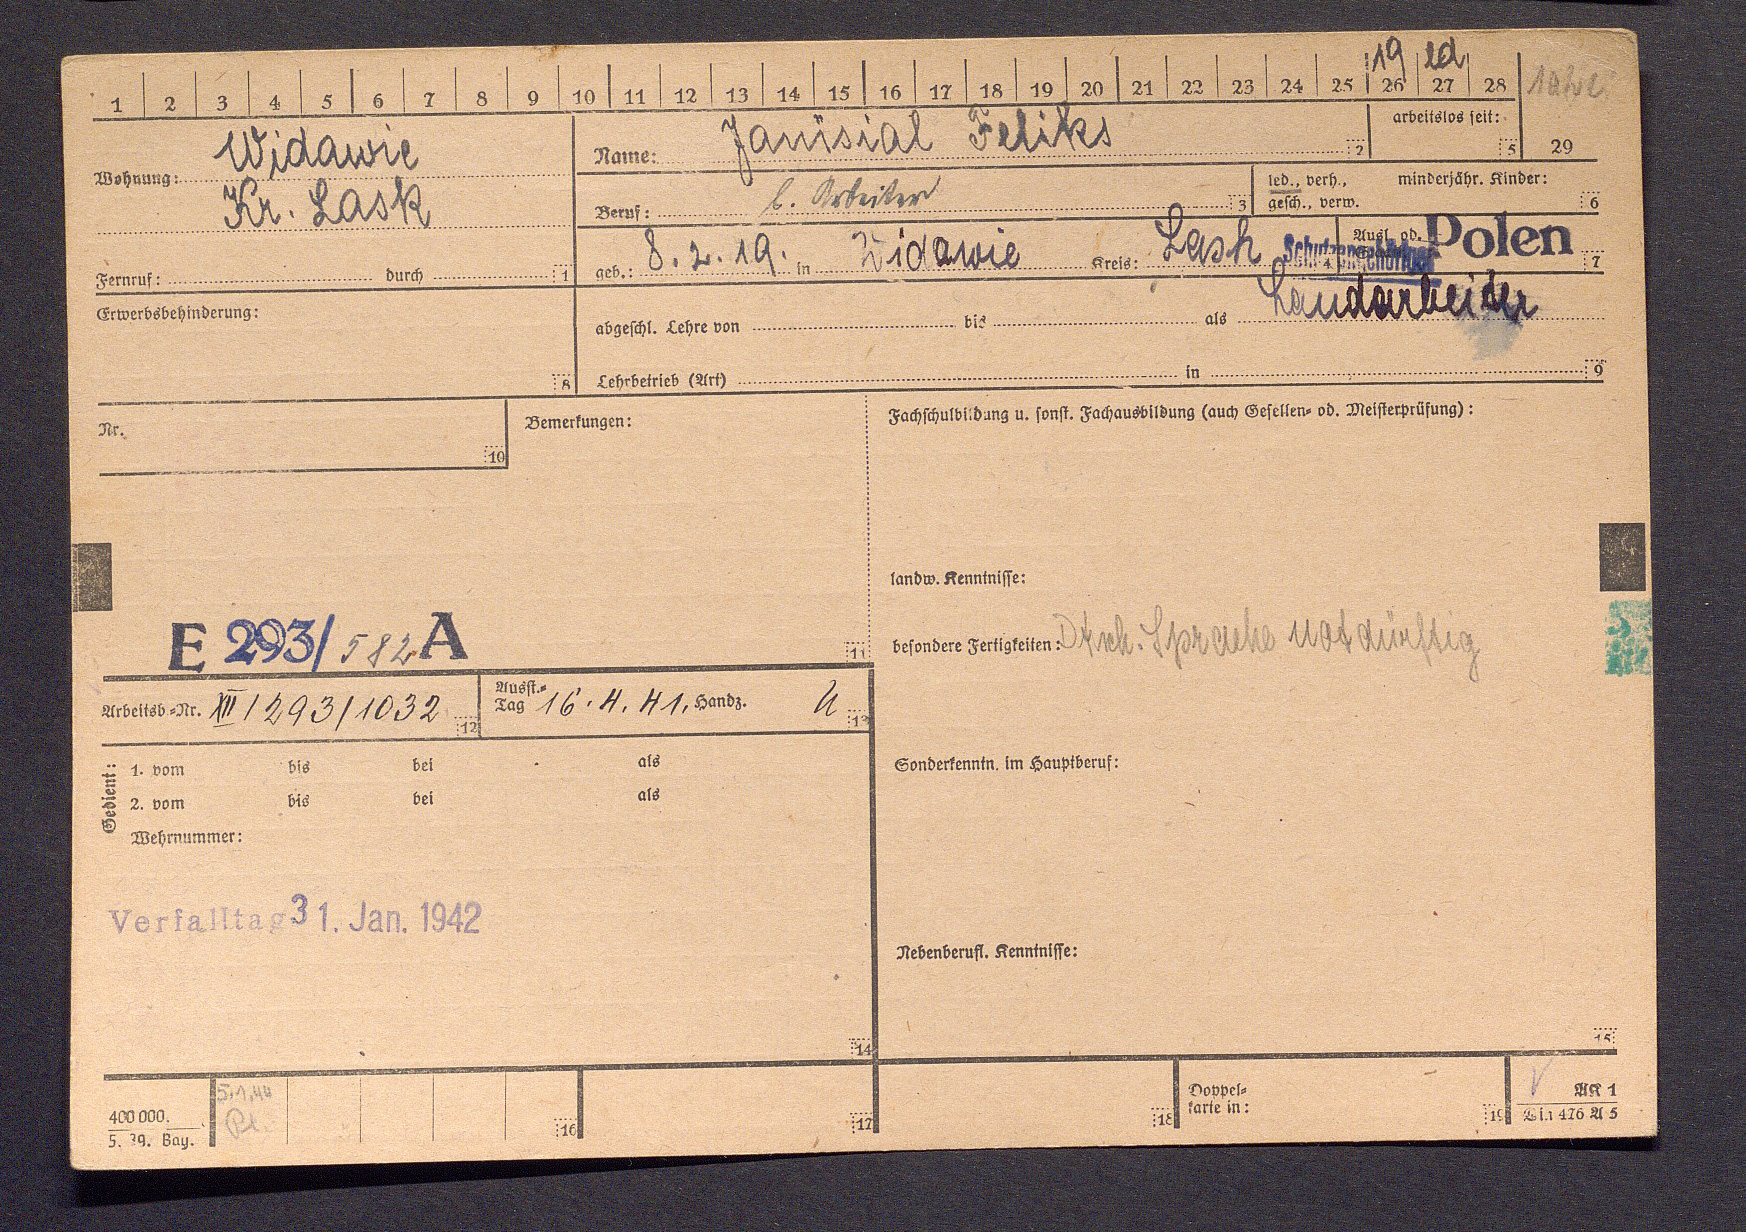 19 led
1 2 3 4 5 6 7 8 9 10 11 12 13 14 15 16 17 18 19 20 21 22 23 24 25 26 27 28
arbeitslos seit: 5 29
Wohnung: Widawie
Kr. Lask
Fernruf: durch 1
Name: Janisial Feliks 2
Beruf: l. Arbeiter 3
led., verh., minderjähr. Kinder:
gesch., verw. 6
geb.: 8.2.19. in Widawie Kreis: Lask 4
Ausl. od. Polen 7
Schutzangehöriger
Landarbeiter
Erwerbsbehinderung: 8
abgeschl. Lehre von bis als
Lehrbetrieb (Art) in 9
Nr. 10
Bemerkungen:
Fachschulbildung u. sonst. Fachausbildung (auch Gesellen- od. Meisterprüfung):
landw. Kenntnisse:
E 293/582 A 11
besondere Fertigkeiten: Dtsch. Sprache notdürftig
Arbeitsb.-Nr. XII/293/1032 12
Ausst.-
Tag 16.4.41. Handz. 13
Gedient: 1. vom bis bei als
2. vom bis bei als
Wehrnummer:
Sonderkenntn. im Hauptberuf:
Verfalltag 31. Jan. 1942
Nebenberufl. Kenntnisse:
14
15
400 000.
5. 39. Bay.
5.1.44
16
17
18
Doppel-
karte in: 19
AK 1
Din 476 A 5